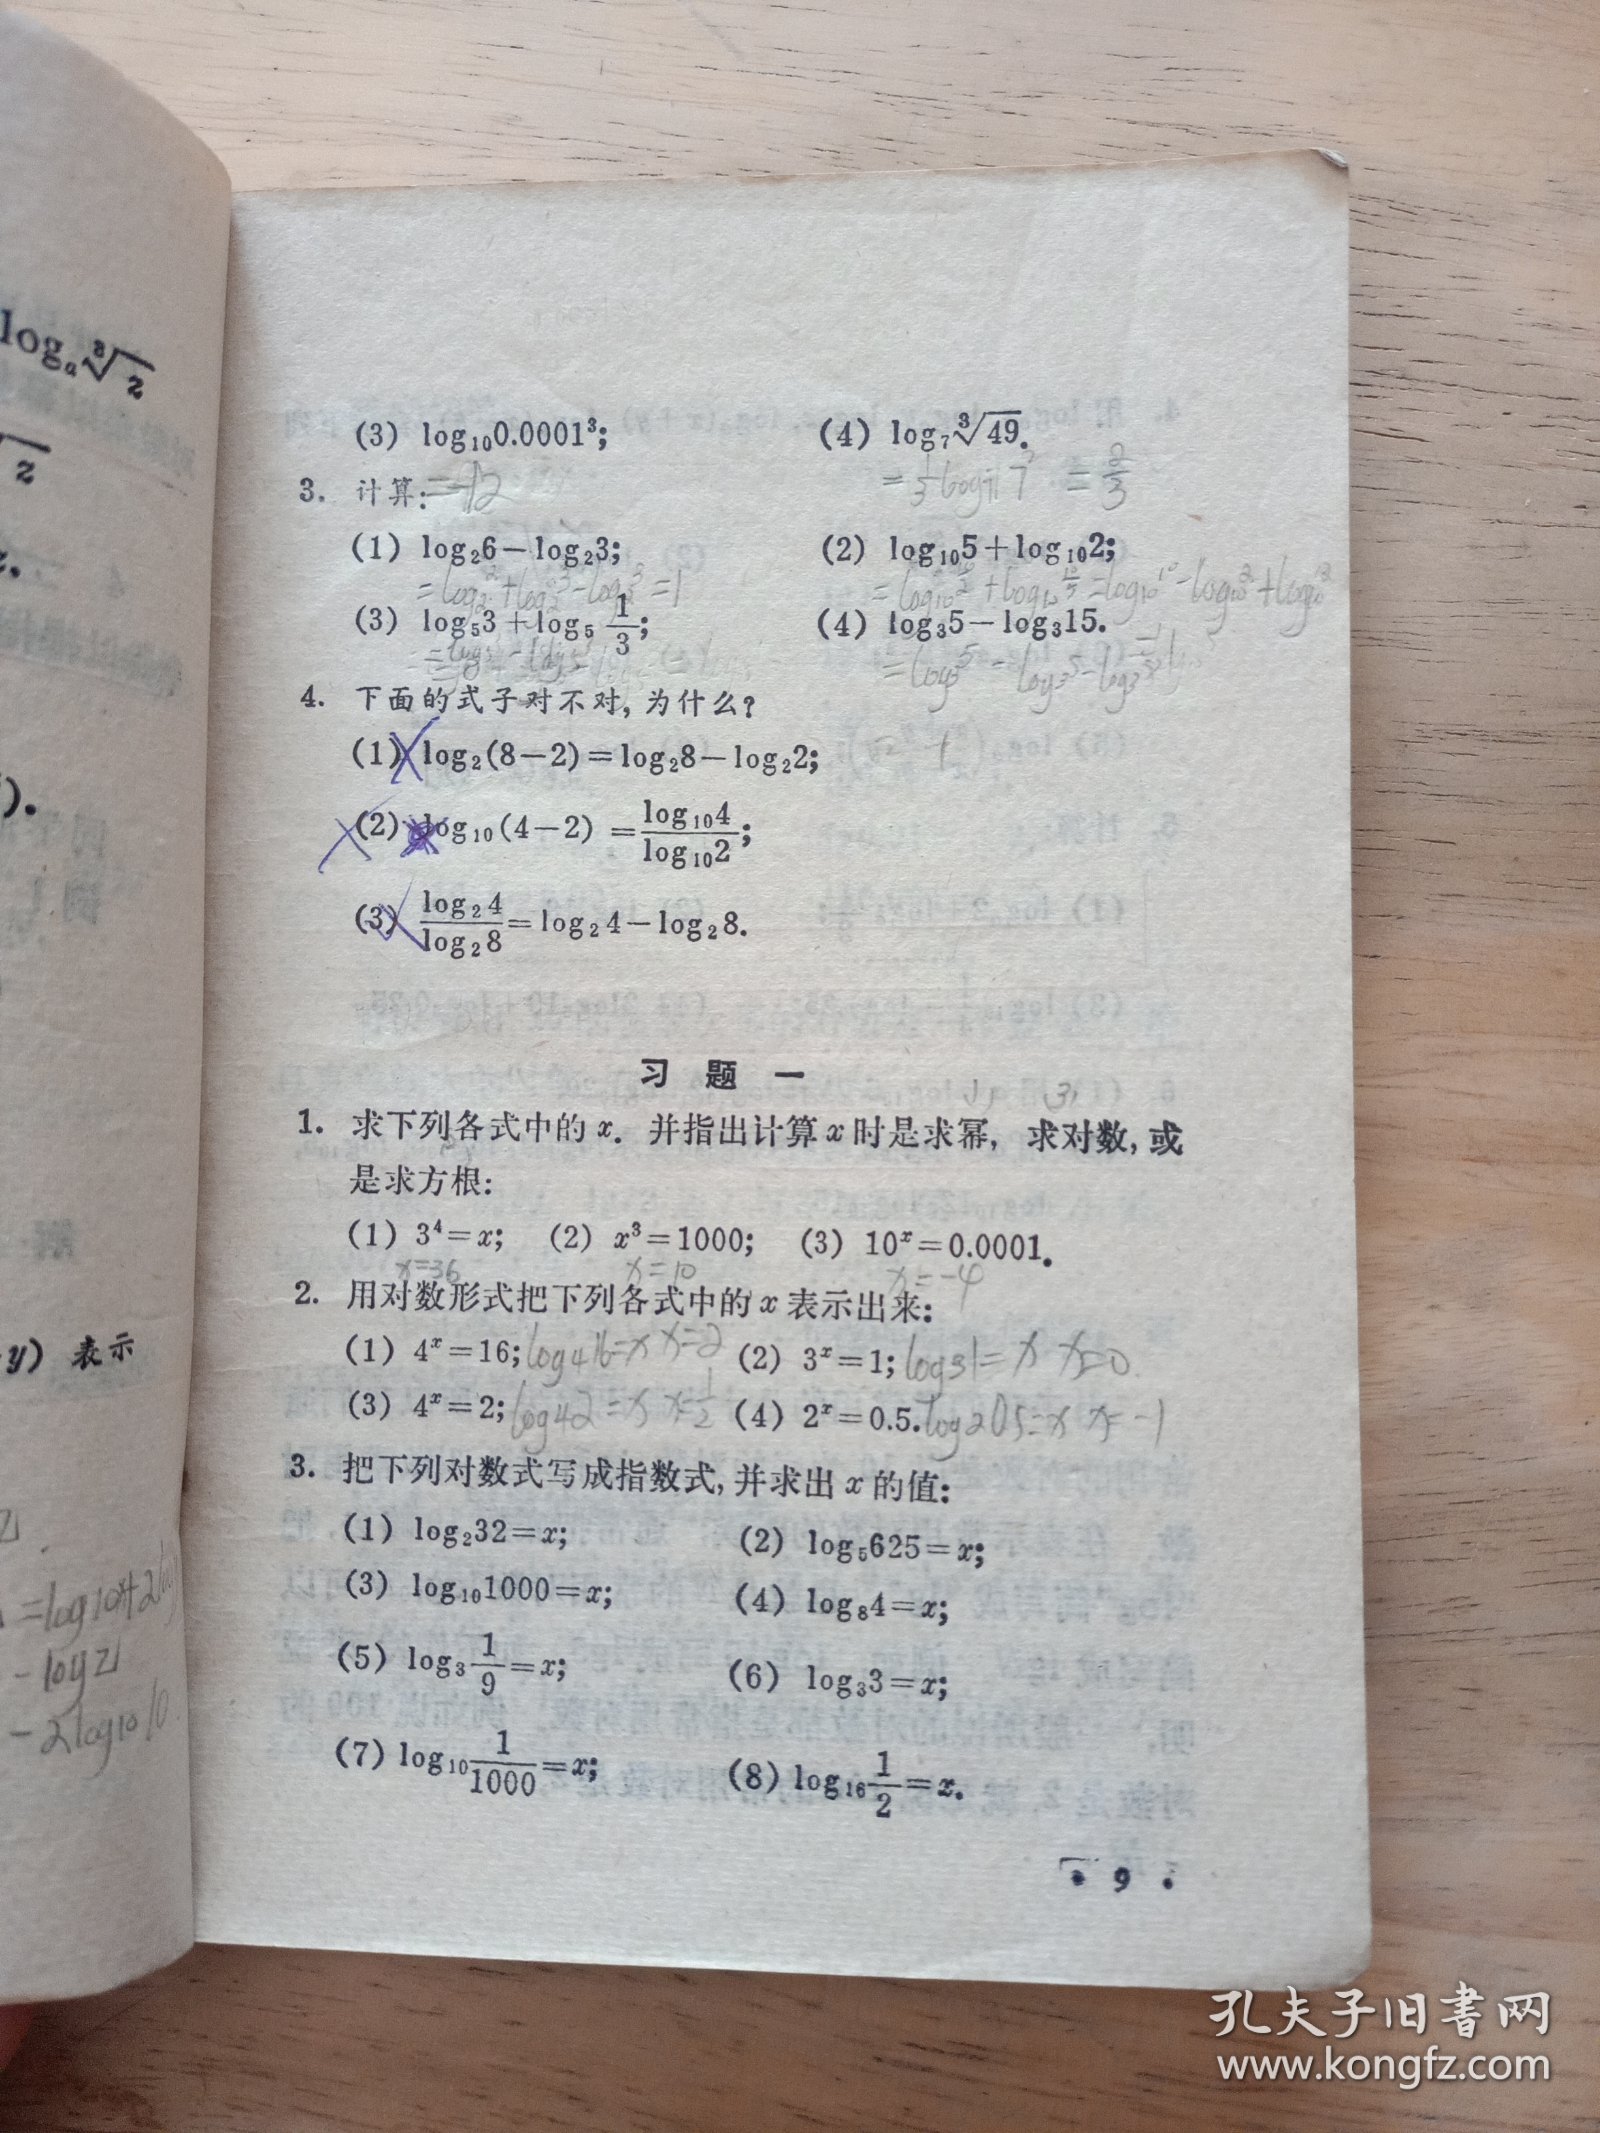 log_a ∛z
z
(3) log₁₀0.0001³; (4) log₇∛49.
= 2/3
3. 计算: =-12
(1) log₂6－log₂3; (2) log₁₀5＋log₁₀2;
=1
(3) log₅3＋log₅ 1/3; (4) log₃5－log₃15.
4. 下面的式子对不对, 为什么?
(1) log₂(8－2)＝log₂8－log₂2;
(2) log₁₀(4－2) ＝ log₁₀4/log₁₀2;
(3) log₂4/log₂8＝log₂4－log₂8.
习 题 一
1. 求下列各式中的 x. 并指出计算 x 时是求幂, 求对数, 或
是求方根:
(1) 3⁴＝x; (2) x³＝1000; (3) 10ˣ＝0.0001.
x=36 x=10 x=-4
2. 用对数形式把下列各式中的 x 表示出来:
(1) 4ˣ＝16; log416=x x=2 (2) 3ˣ＝1; log31=x x=0
(3) 4ˣ＝2; log42=x x=1/2 (4) 2ˣ＝0.5. log205=x x=-1
3. 把下列对数式写成指数式, 并求出 x 的值:
(1) log₂32＝x; (2) log₅625＝x;
(3) log₁₀1000＝x; (4) log₈4＝x;
(5) log₃ 1/9＝x; (6) log₃3＝x;
(7) log₁₀ 1/1000＝x; (8) log₁₆ 1/2＝x.
• 9 •
y) 表示
孔夫子旧书网
www.kongfz.com